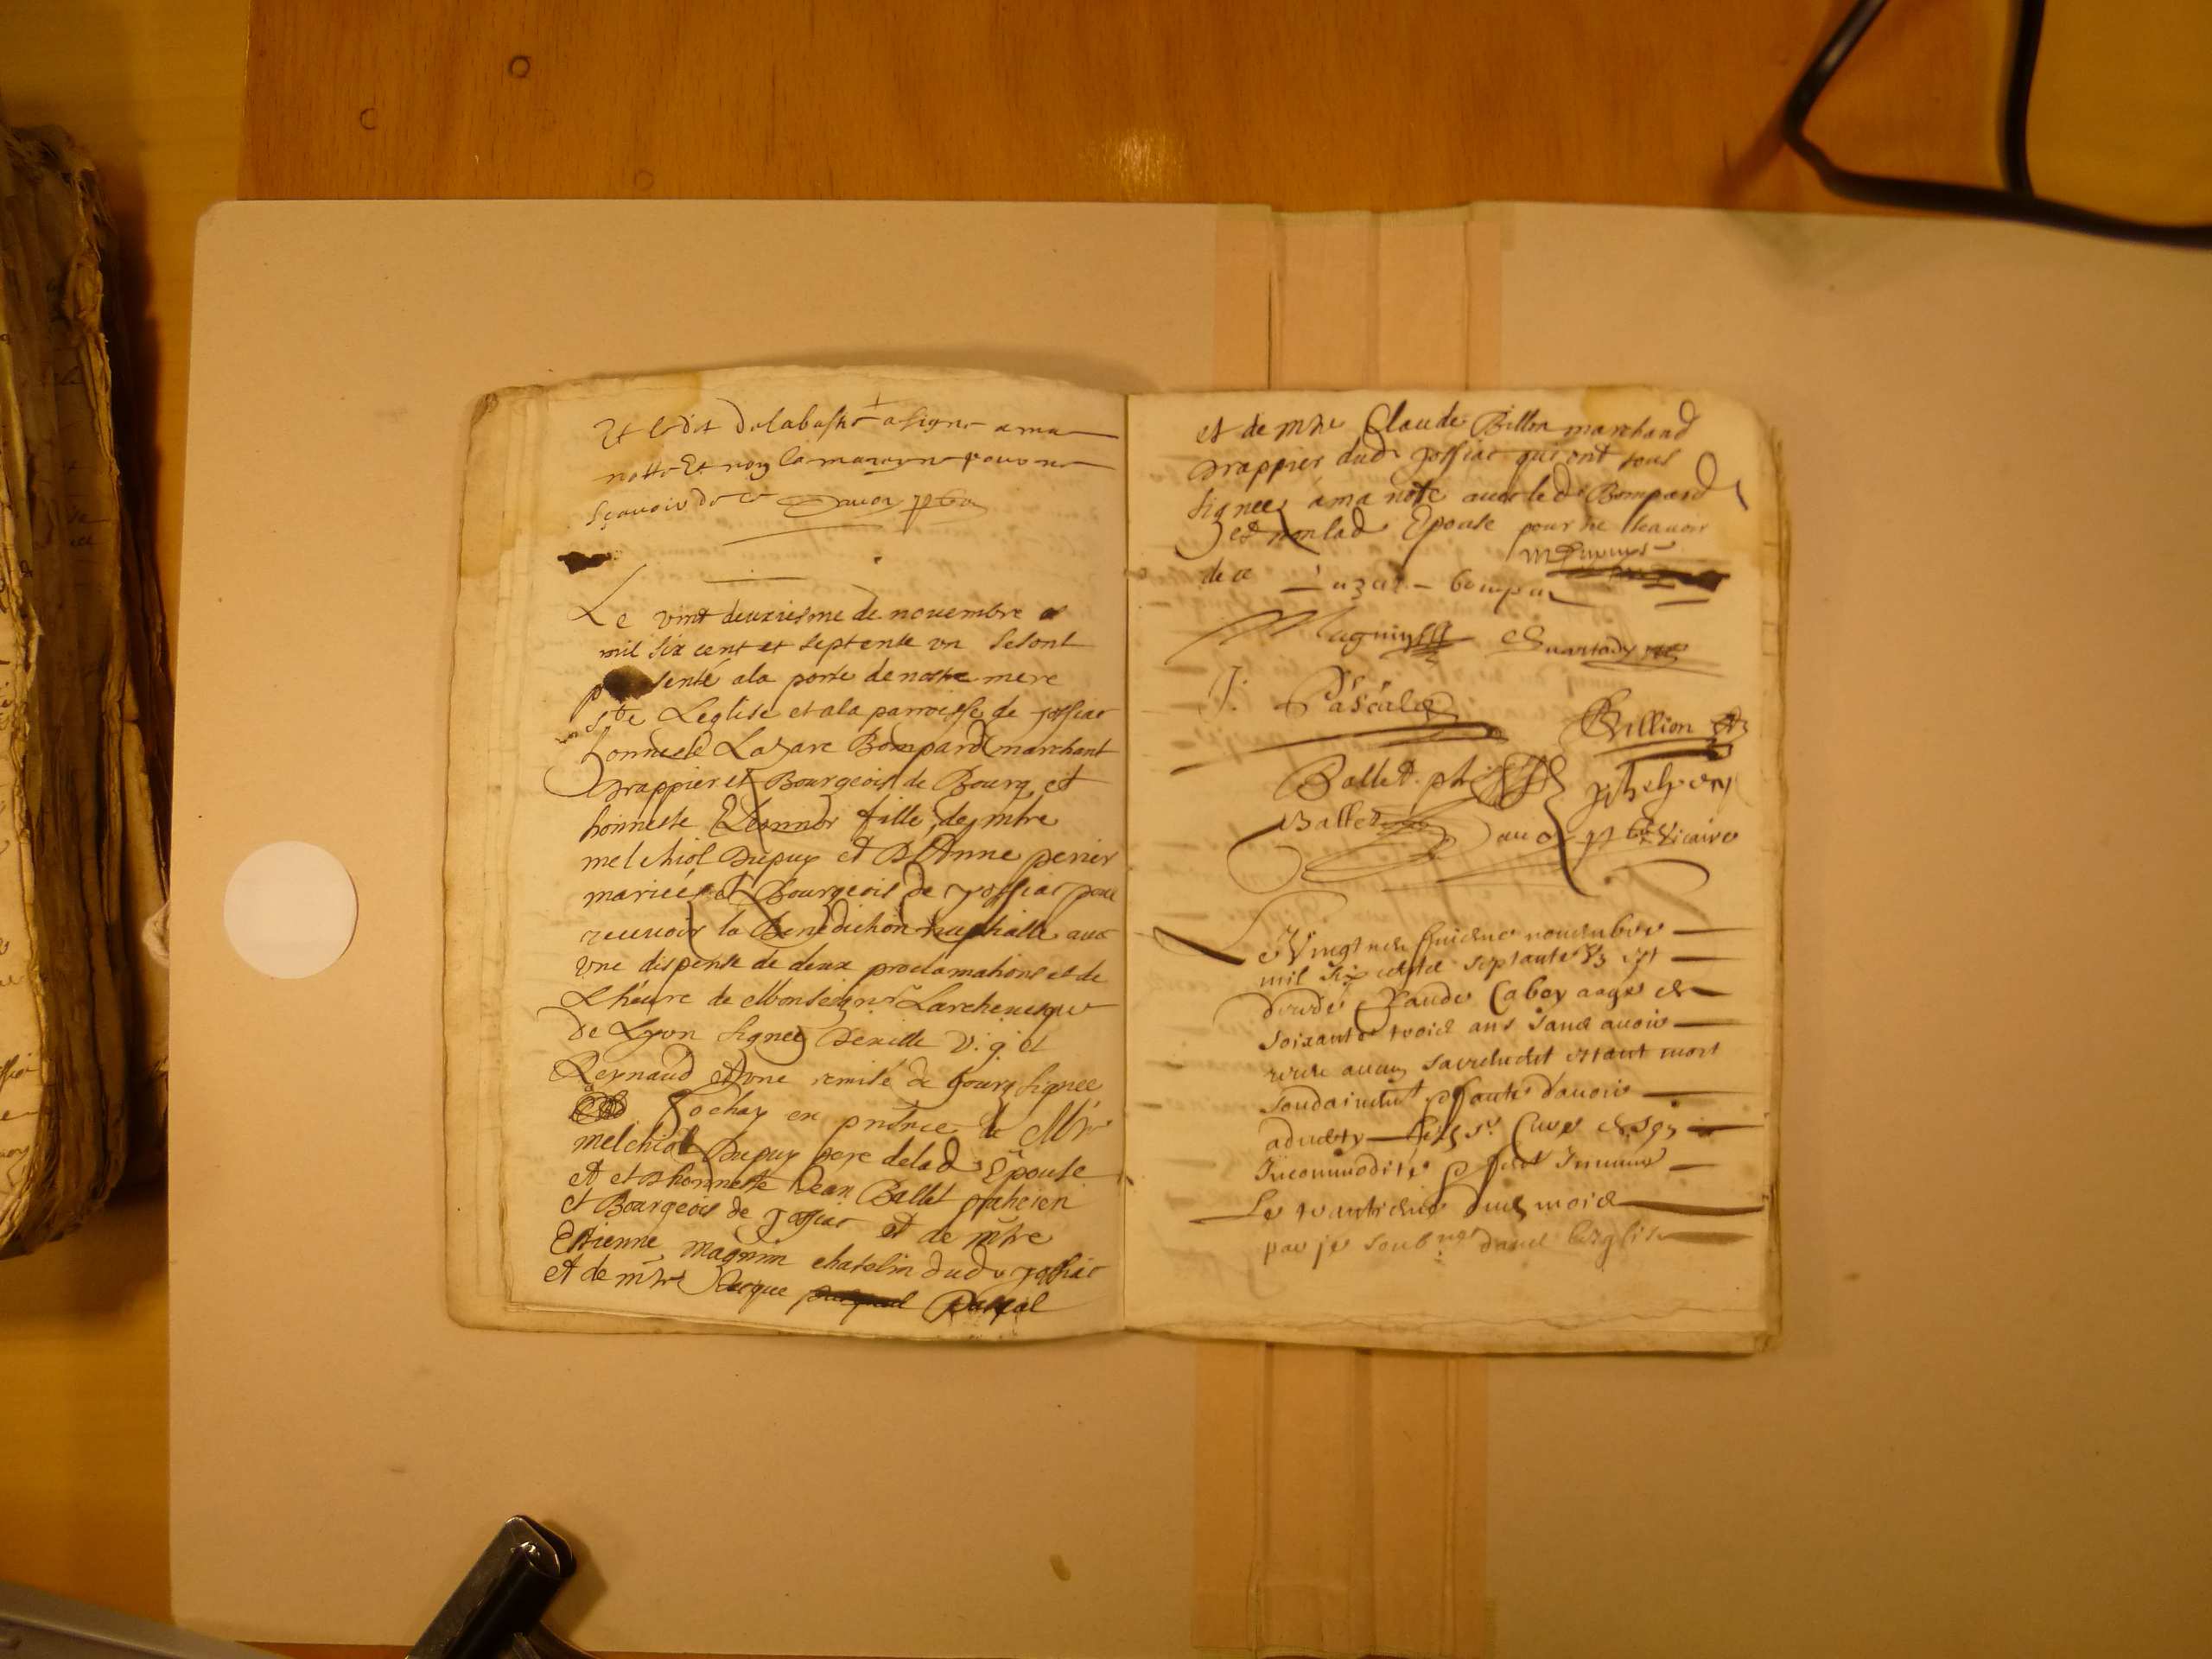 Et ledit delabastie a signé a ma
notte Et non la marayne pour ne
sçavoir de ce Davon ptre
Le vint deuxiesme de novembre
mil six cent et septente un se sont
senté a la porte de nostre mere
ste Leglise et a la parroisse de jossiac
honneste Lazare Bompard marchant
drappier et Bourgeois de Bourg et
honneste Eleonnor fille de mtre
melchiol Dupuy et D Anne perier
mariées et Bourgeois de jossiac pour
recevoir la Benediction nuptialle avec
une dispense de deux proclamations et de
Lheure de Monseignr Larchevesque
De Lyon signee Deville v. g. et
Reynaud et une remise de bourg signee
en prnce de Mtre
melchiol Dupuy pere delad Epouse
et honneste Jean Ballet praticien
et Bourgeois de jossiac et de mtre
Estienne magnin chatelin dud jossiac
et de mtre Jacque Pascal
et de mtre Claude Billon marchand
drappier dud jossiac qui ont sous
signees a ma note avec led Bompard
et non lad Epouse pour ne scavoir
de ce Lazare bompar
MDupuys
Magnin
J. Pascal
Billion
Ballet ptr
Ballet
Davon ptre vicaire
Le Vingt neufviesme novembre
mil six cents septante Un est
decede Claude Caboy aage de
soixante trois ans sans avoir
receu aucun sacrement estant mort
soudainement p faute davoir
adverty Sr Curé de son
Incommodité Inhumé
Le trantiesme dud mois
par je soubsné dans leglise